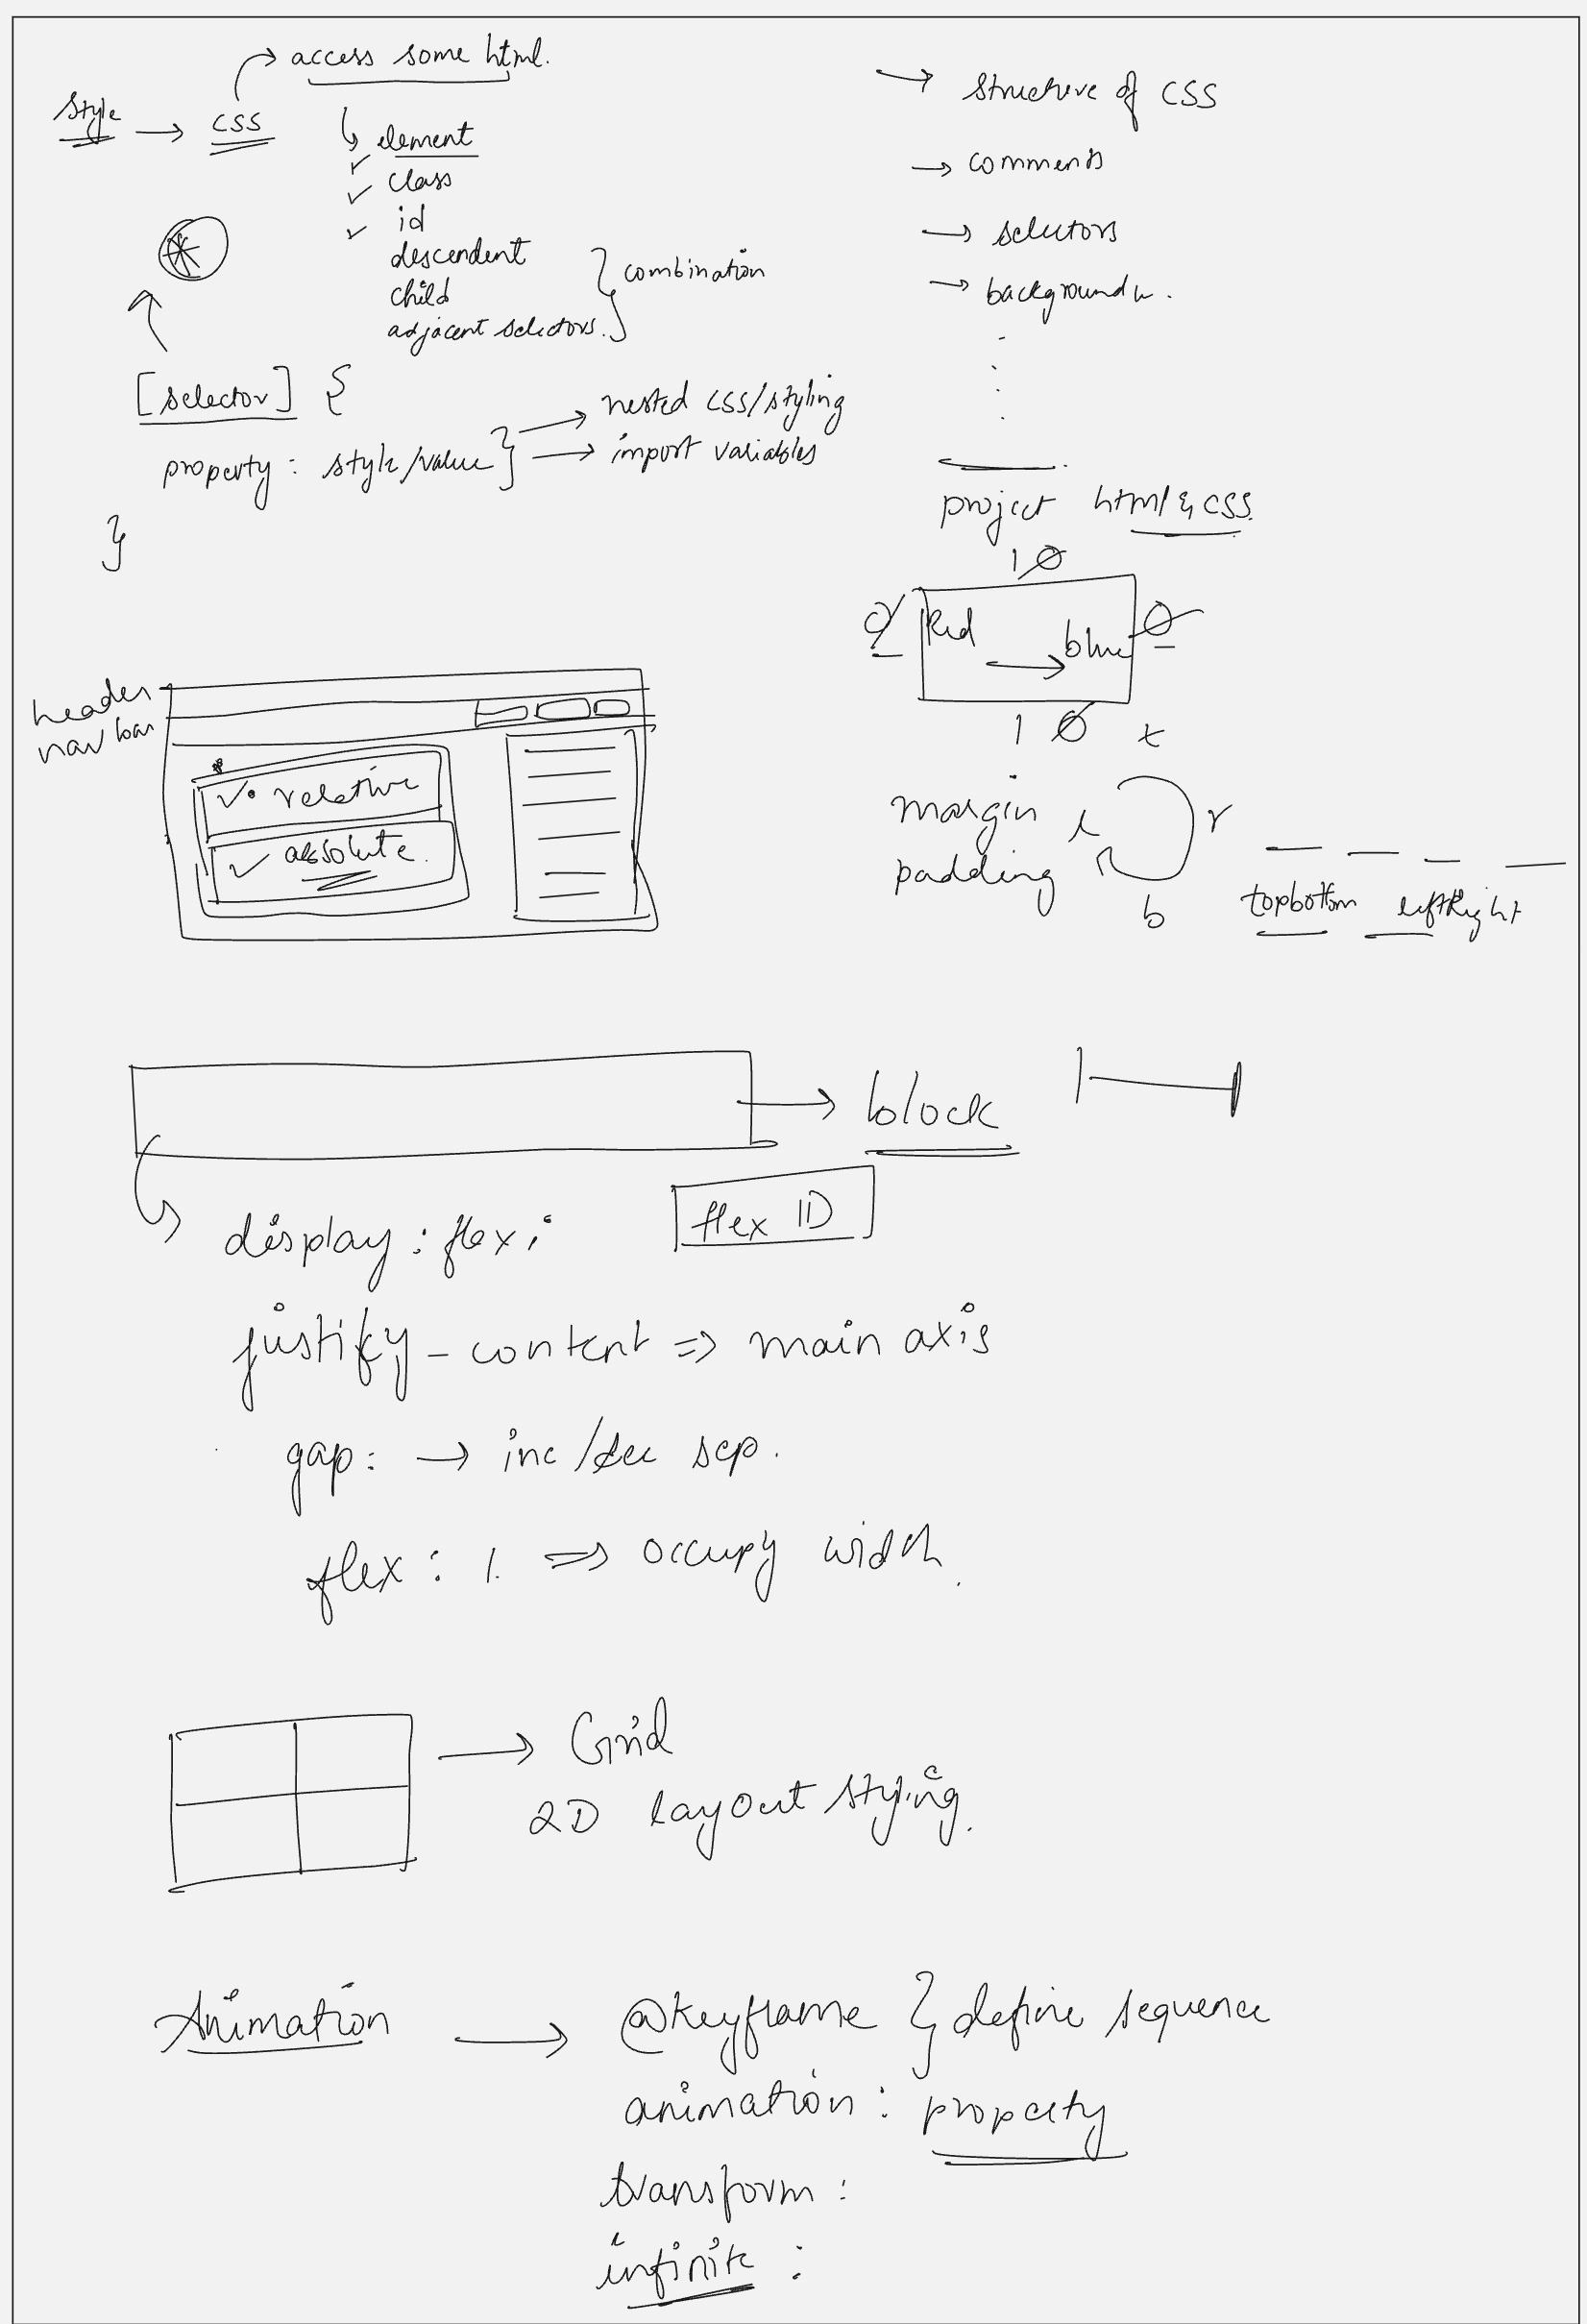 access some html.
style → css
element
✓ class
✓ id
✓
descendent
child
adjacent selectors.
} combination
*
[selector] {
property : style/value } → nested css/styling
→ import variables
}
→ structure of CSS
→ comments
→ selectors
→ background
project html & css
1 0
0 Red → blue 0
1 0 t
margin l r
padding
b
topbottom leftright
header
nav bar
✓ relative
✓ absolute.
→ block
flex 1D
display : flex ;
justify-content => main axis
gap: → inc/dec sep.
flex : 1. => occupy width.
→ Grid
2D layout styling.
Animation → @keyframe } define sequence
animation : property
transform :
infinite :